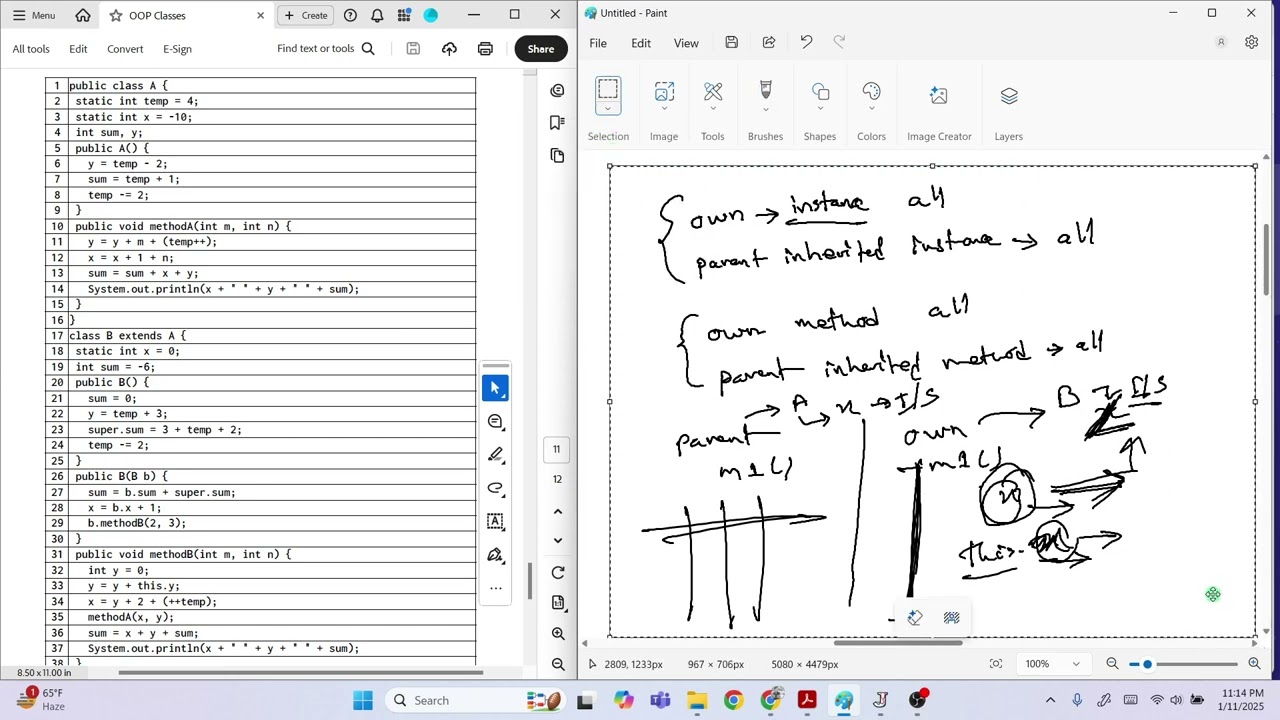 Menu
OOP Classes
Create
All tools Edit Convert E-Sign
Find text or tools
Share
1 public class A {
2 static int temp = 4;
3 static int x = -10;
4 int sum, y;
5 public A() {
6 y = temp - 2;
7 sum = temp + 1;
8 temp -= 2;
9 }
10 public void methodA(int m, int n) {
11 y = y + m + (temp++);
12 x = x + 1 + n;
13 sum = sum + x + y;
14 System.out.println(x + " " + y + " " + sum);
15 }
16 }
17 class B extends A {
18 static int x = 0;
19 int sum = -6;
20 public B() {
21 sum = 0;
22 y = temp + 3;
23 super.sum = 3 + temp + 2;
24 temp -= 2;
25 }
26 public B(B b) {
27 sum = b.sum + super.sum;
28 x = b.x + 1;
29 b.methodB(2, 3);
30 }
31 public void methodB(int m, int n) {
32 int y = 0;
33 y = y + this.y;
34 x = y + 2 + (++temp);
35 methodA(x, y);
36 sum = x + y + sum;
37 System.out.println(x + " " + y + " " + sum);
38 }
11
12
8.50 x 11.00 in
Untitled - Paint
File Edit View
R
Selection Image Tools Brushes Shapes Colors Image Creator Layers
own → instance all
parent inherited instance → all
own method all
parent inherited method → all
parent → A → x → I/S
own → B x I/S
m1()
m1()
x
this.
2809, 1233px
967 × 706px
5080 × 4479px
100%
1
65°F
Haze
Search
1:14 PM
1/11/2025